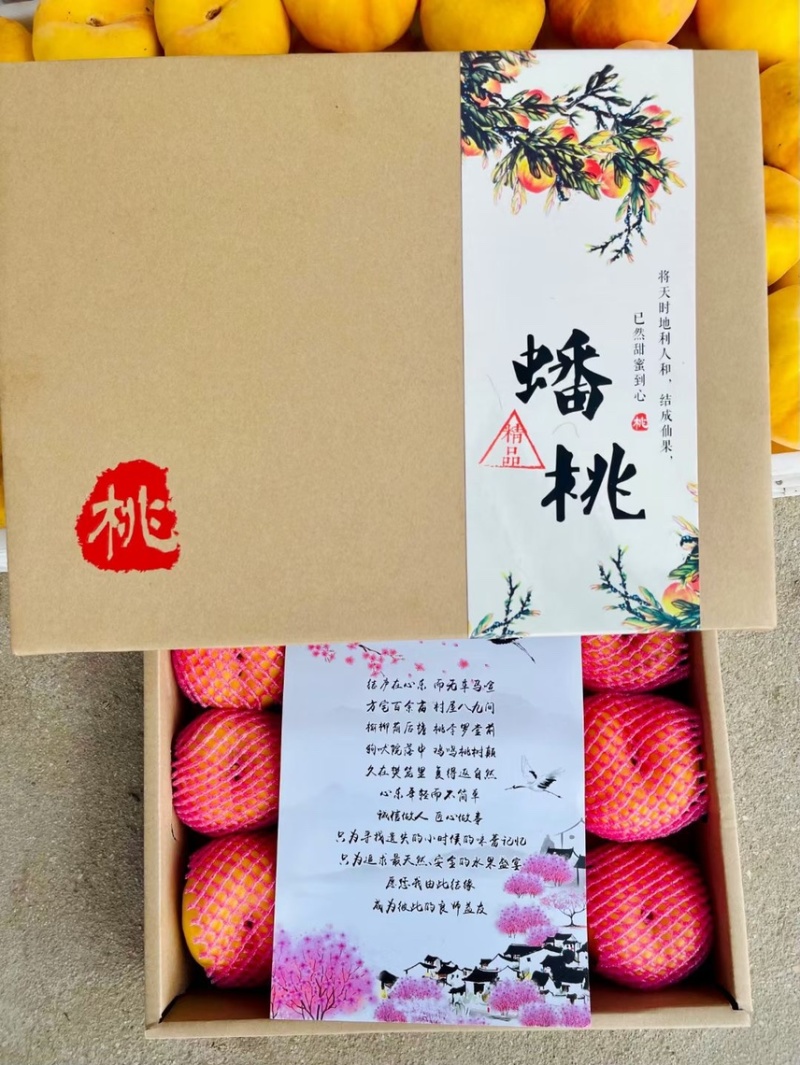 将天时地利人和，结成仙果，
已然甜蜜到心
桃
蟠桃
精品
桃
结庐在心东 而无车马喧
方宅百余亩 村屋八九间
榆柳荫后檐 桃李罗堂前
狗吠院落中 鸡鸣桃树颠
久在樊笼里 复得返自然
心东年轻而不简单
诚信做人 匠心做事
只为寻找遗失的小时候的味蕾记忆
只为追求最天然、安全的水果盛宴
愿您我由此结缘
成为彼此的良师益友